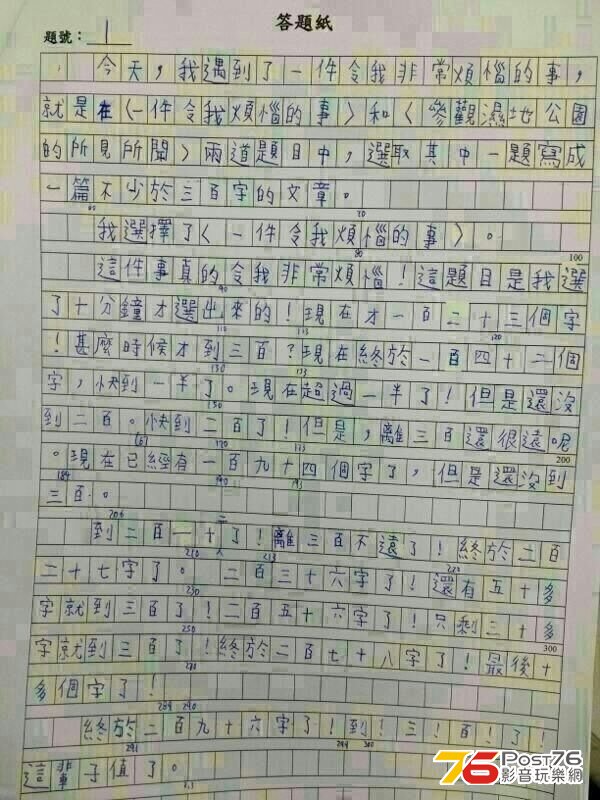 答題紙
題號：1
今天，我遇到了一件令我非常煩惱的事，
就是在〈一件令我煩惱的事〉和〈參觀濕地公園
的所見所聞〉兩道題目中，選取其中一題寫成
一篇不少於三百字的文章。
60 20
我選擇了〈一件令我煩惱的事〉。
80 100
這件事真的令我非常煩惱！這題目是我選
90
了十分鐘才選出來的！現在才一百二十三個字
110 113 120
！甚麼時候才到三百？現在終於一百四十二個
130 133
字，快到一半了。現在超過一半了！但是還沒
150
到二百。快到二百了！但是，離三百還很遠呢
161 170 173 200
。現在已經有一百九十四個字了，但是還沒到
184 190 193
三百。
206
到二百一十了！離三百不遠了！終於二百
210 213 220
二十七字了。二百三十六字了！還有五十多
230
字就到三百了！二百五十六字了！只剩三十多
250 300
字就到三百了！終於二百七十八字了！最後十
270
多個字了！
284 290
終於二百九十六字了！到！三！百！了！
291 299 300
這輩子值了。
76 Post76
影音玩樂網